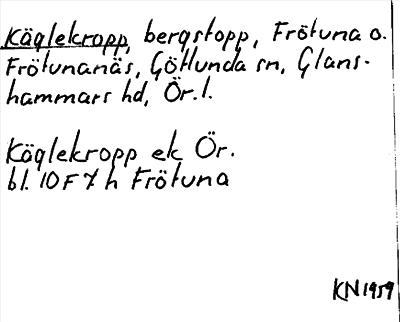 Käglekropp, bergstopp, Frötuna o.
Frötunanäs, Götlunda sn, Glans-
hammars hd, Ör. l.
Käglekropp ek Ör.
bl. 10F7h Frötuna
KN1959